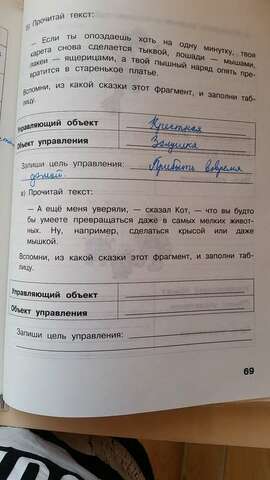 б) Прочитай текст:
— Если ты опоздаешь хоть на одну минутку, твоя
карета снова сделается тыквой, лошади — мышами,
лакеи — ящерицами, а твой пышный наряд опять пре-
вратится в старенькое платье.
Вспомни, из какой сказки этот фрагмент, и заполни таб-
лицу.
Управляющий объект Крестная
Объект управления Золушка
Запиши цель управления: Прибыть вовремя
домой.
в) Прочитай текст:
— А ещё меня уверяли, — сказал Кот, — что вы будто
бы умеете превращаться даже в самых мелких живот-
ных. Ну, например, сделаться крысой или даже
мышкой.
Вспомни, из какой сказки этот фрагмент, и заполни таб-
лицу.
Управляющий объект
Объект управления
Запиши цель управления:
69